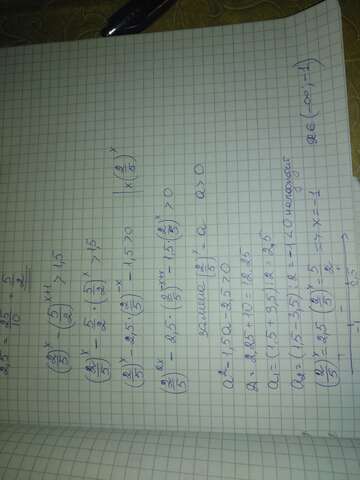 2,5 = 25/10 = 5/2
(2/5)^x - (5/2)^(x+1) > 1,5
(2/5)^x - 5/2 · (5/2)^x > 1,5
(2/5)^x - 2,5 · (2/5)^(-x) - 1,5 > 0 | x (2/5)^x
(2/5)^(2x) - 2,5 · (2/5)^(-x+x) - 1,5 (2/5)^x > 0
замена (2/5)^x = a a > 0
a² - 1,5a - 2,5 > 0
D = 2,25 + 10 = 12,25
a₁ = (1,5 + 3,5) : 2 = 2,5
a₂ = (1,5 - 3,5) : 2 = -1 < 0 не подходит
(2/5)^x = 2,5 (2/5)^x = 5/2 => x = -1
x ∈ (-∞; -1)
-1